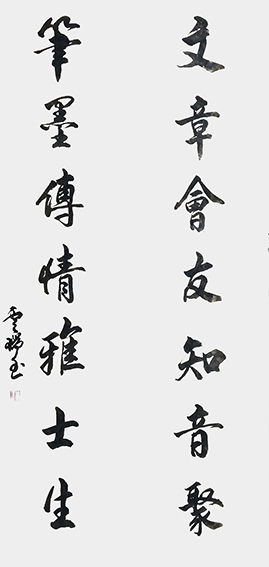 文章會友知音聚
筆墨傳情雅士生